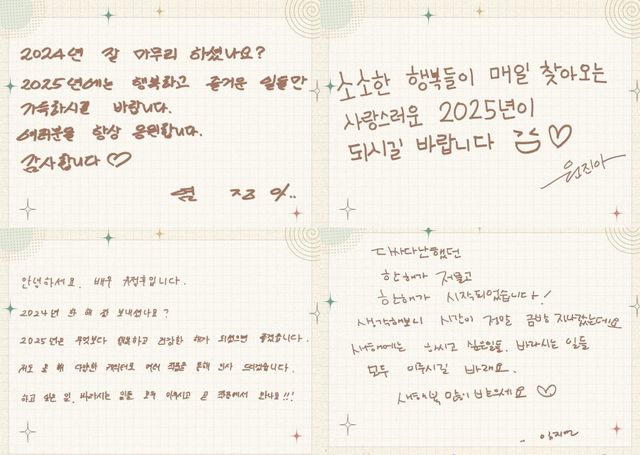 2024년 잘 마무리 하셨나요?
2025년에는 행복하고 즐거운 일들만
가득하시길 바랍니다.
여러분을 항상 응원합니다.
감사합니다 ♡
염 정 아..
소소한 행복들이 매일 찾아오는
사랑스러운 2025년이
되시길 바랍니다 ♡
원진아
안녕하세요. 배우 입니다.
2024년 한 해 잘 보내셨나요?
2025년은 무엇보다 행복하고 건강한 해가 되셨으면 좋겠습니다.
저도 올 해 다양한 캐릭터로 여러 작품을 통해 인사 드리겠습니다.
하고 싶은 일, 바라시는 일들 모두 이루시고 곧 작품에서 만나요!!!
다사다난했던
한해가 저물고
한해가 시작되었습니다!
생각해보니 시간이 정말 금방 지나갔는데요
새해에는 하시고 싶은일들, 바라시는 일들
모두 이루시길 바래요.
새해복 많이 받으세요 ♡
- 임지연